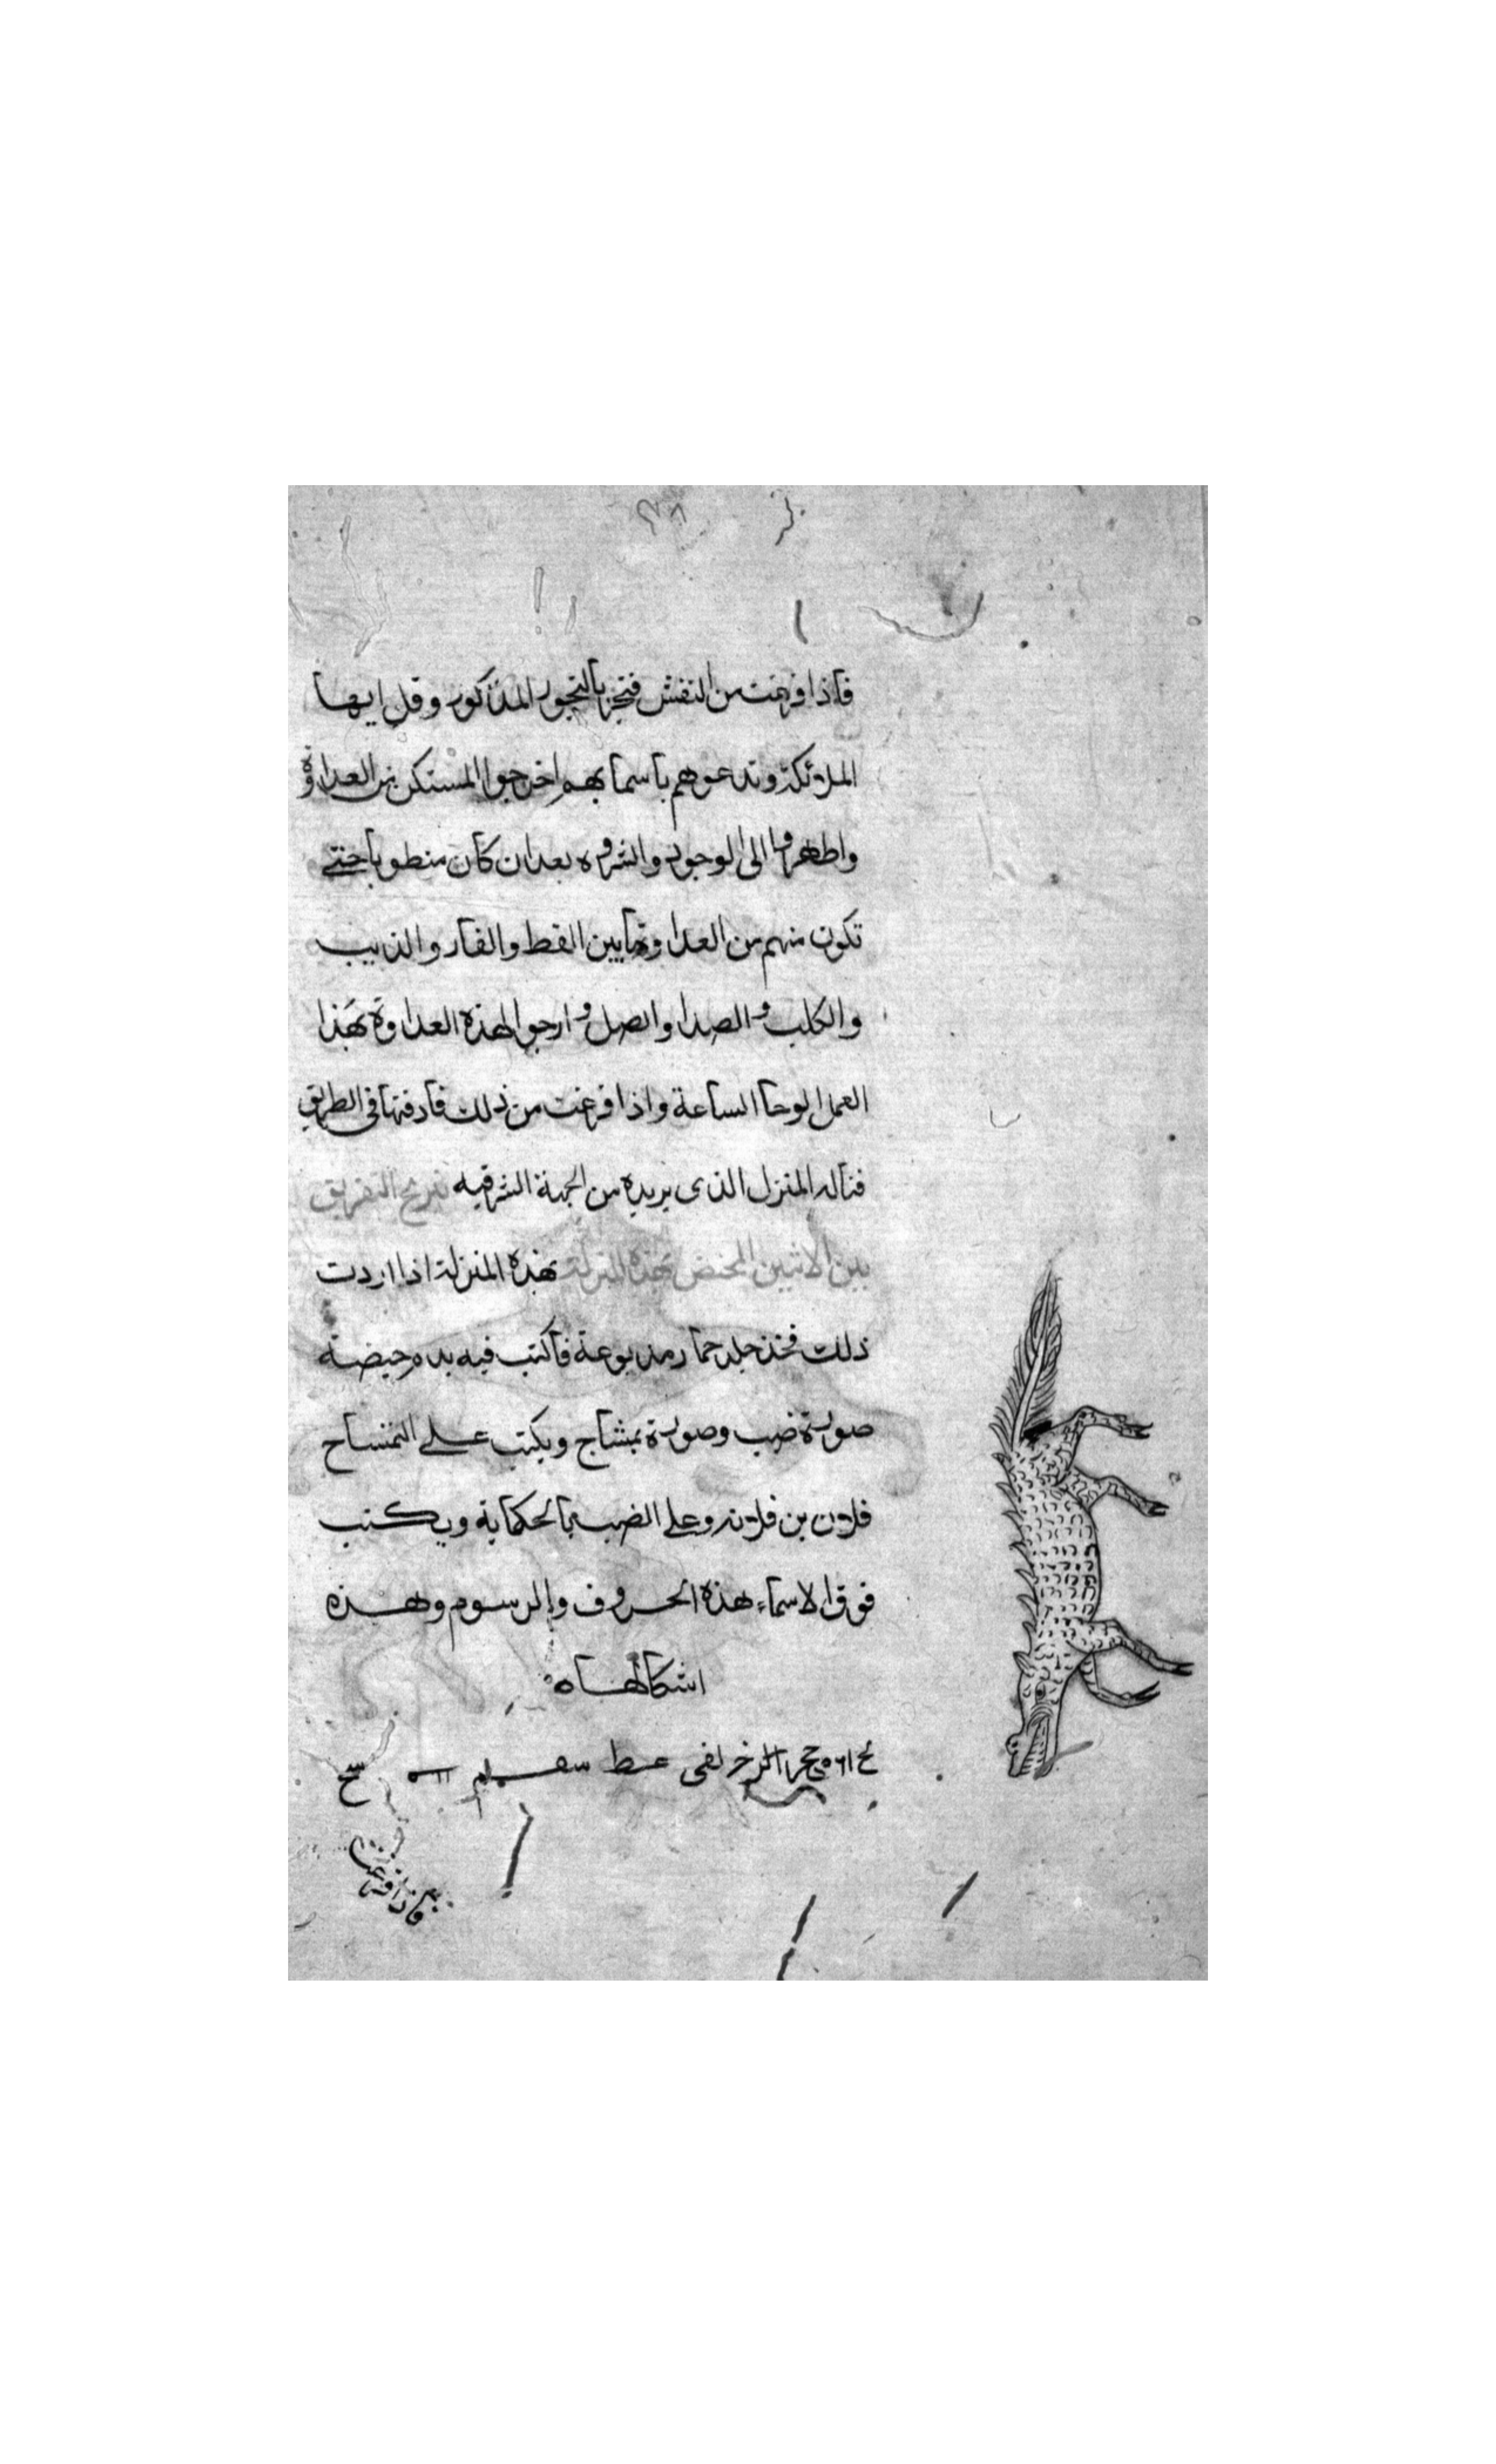 فاذا فرغت من النقش فتبخر بالبخور المذكور وقل ايها
الملائكة وتدعوهم باسمايهم اخرجوا المستكن من العداوة
واظهروا الى الوجود والشروه بعد ان كان منطويا حتى
تكون منهم من العداوة ما بين القط والفار والذيب
والكلب و الصدا والصل و ارجوا لهذه العداوة بهذا
العمل الوحا الساعة واذا فرغت من ذلك فادفنها في الطريق
المنزل الذى يريده من الجهة الشرقيه التفريق
بين الاثنين المختص بهذه المنزلة بهذه المنزلة اذا اردت
ذلك فخذ جلد حمار مدبوغة فاكتب فيه بدم حيضة
صورة ضب وصورة تمشاح ويكتب على التمساح
فلان بن فلانه وعلى الضب بالحكاية ويكتب
فوق الاسماء هذه الحروف والرسوم وهذه
اشكالها ه
فاذا فرغت